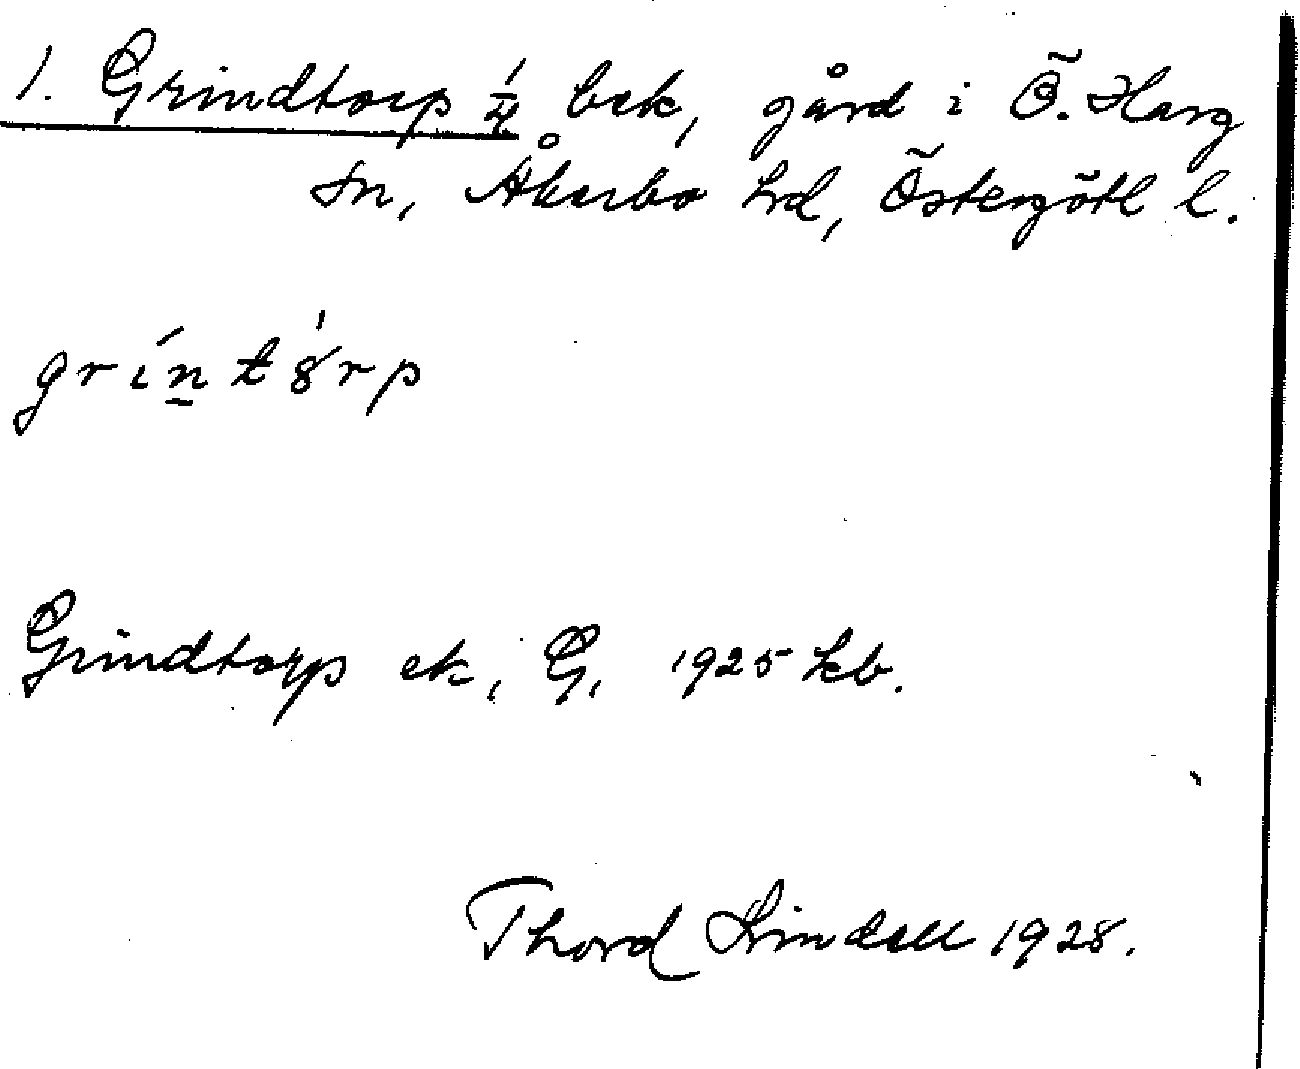 1. Grindtorp 1/4 bek, gård i Ö. Harg
sn, Åkerbo hd, Östergötl l.
grín̲tȣ́rp
Grindtorp ek, G, 1925 kb.
Thord Lindell 1928.